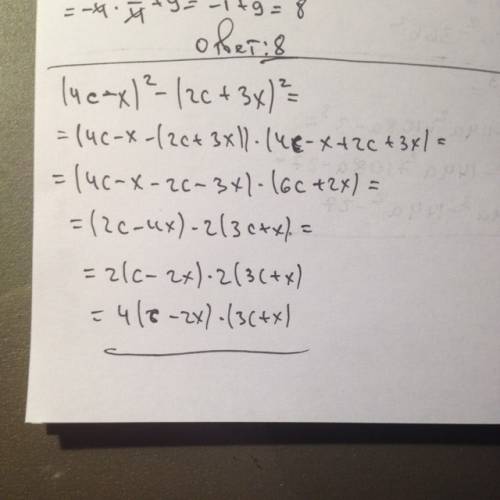 = -4 · 1/4 + 9 = -1 + 9 = 8
ответ: 8
(4c-x)² - (2c + 3x)² =
= (4c-x-(2c+3x)) · (4c-x+2c+3x) =
= (4c-x-2c-3x) · (6c+2x) =
= (2c-4x) - 2(3c+x) =
= 2(c-2x) · 2(3c+x)
= 4(c-2x) · (3c+x)